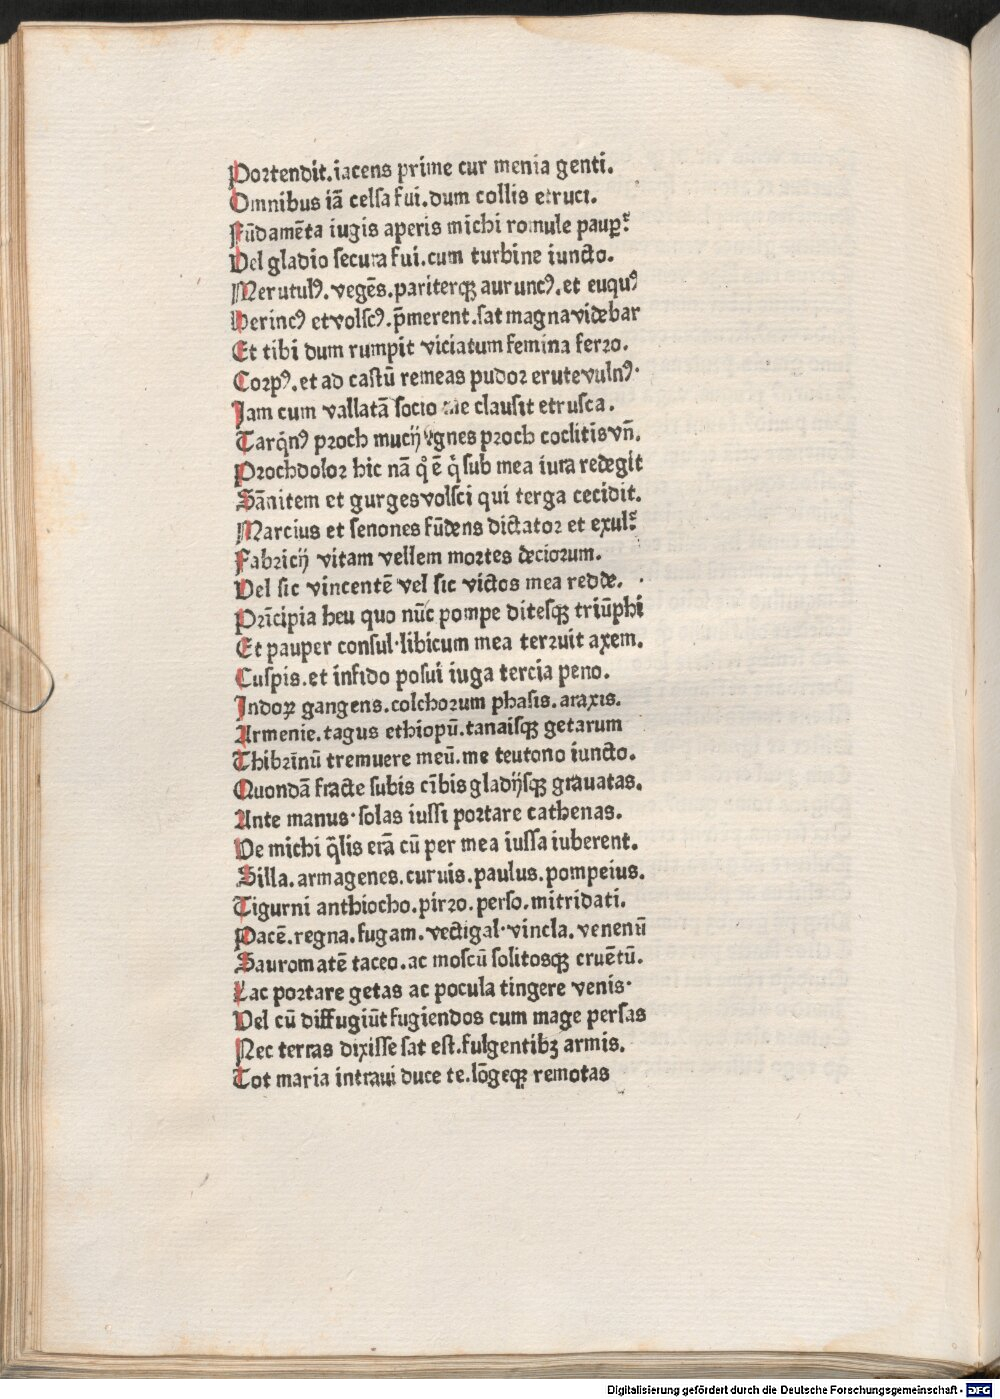 Portendit.iacens prime cur menia genti.
Omnibus iã celsa fui.dum collis etruci.
Fũdamẽta iugis aperis michi romule pauꝑ.ͬ
Vel gladio secura fui.cum turbine iuncto.
Me rutulꝰ.vegẽs.pariterqꝫ auruncꝰ.et euquꝰ
Herincꝰ et volscꝰ.p̃merent.sat magna videbar
Et tibi dum rumpit viciatum femina ferro.
Corpꝰ.et ad castũ remeas pudor erute vulnꝰ.
Jam cum vallatã socio me clausit etrusca.
Tarq̃nꝰ proch mucij ignes proch coclitis vñ.
Prochdolor hic nã qͦ ẽ qͥ sub mea iura redegit
Sãnitem et gurges volsci qui terga cecidit.
Marcius et senones fũdens dictator et exul.ͬ
Fabricij vitam vellem mortes deciorum.
Vel sic vincentẽ vel sic victos mea redde.
Prĩcipia heu quo nũc pompe ditesqꝫ triũphi
Et pauper consul.libicum mea terruit axem.
Cuspis.et infido posui iuga tercia peno.
Indoꝝ gangens.colchorum phasis.araxis.
Armenie.tagus ethiopũ.tanaisqꝫ getarum
Thibrĩnũ tremuere meũ.me teutono iuncto.
Quondã fracte subis cĩbis gladijsqꝫ grauatas.
Ante manus.solas iussi portare cathenas.
Ve michi q̃lis erã cũ per mea iussa iuberent.
Silla.armagenes.curuis.paulus.pompeius.
Tigurni anthiocho.pirro.perso.mitridati.
Pacẽ.regna.fugam.vectigal.vincla.venenũ
Sauromatẽ taceo.ac moscũ solitosqꝫ cruẽtũ.
Lac portare getas ac pocula tingere venis.
Vel cũ diffugiũt fugiendos cum mage persas
Nec terras dixisse sat est.fulgentibꝫ armis.
Tot maria intraui duce te.lõgeqꝫ remotas
Digitalisierung gefördert durch die Deutsche Forschungsgemeinschaft - DFG